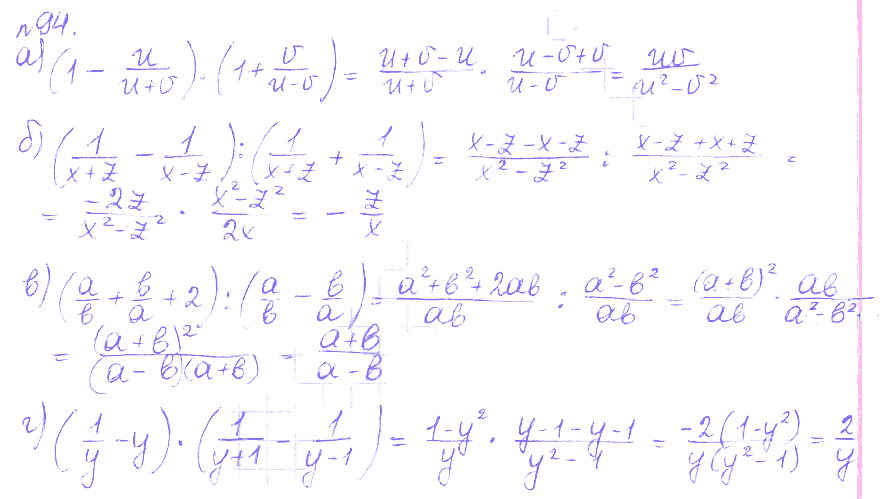 №94.
а) (1 - u/(u+v)) · (1 + v/(u-v)) = (u+v-u)/(u+v) · (u-v+v)/(u-v) = uv/(u²-v²)
б) (1/(x+z) - 1/(x-z)) : (1/(x+z) + 1/(x-z)) = (x-z-x-z)/(x²-z²) : (x-z+x+z)/(x²-z²) =
= (-2z)/(x²-z²) · (x²-z²)/(2x) = - z/x
в) (a/b + b/a + 2) : (a/b - b/a) = (a²+b²+2ab)/(ab) : (a²-b²)/(ab) = (a+b)²/(ab) · ab/(a²-b²)
= (a+b)²/((a-b)(a+b)) = (a+b)/(a-b)
г) (1/y - y) · (1/(y+1) - 1/(y-1)) = (1-y²)/y · (y-1-y-1)/(y²-1) = (-2(1-y²))/(y(y²-1)) = 2/y